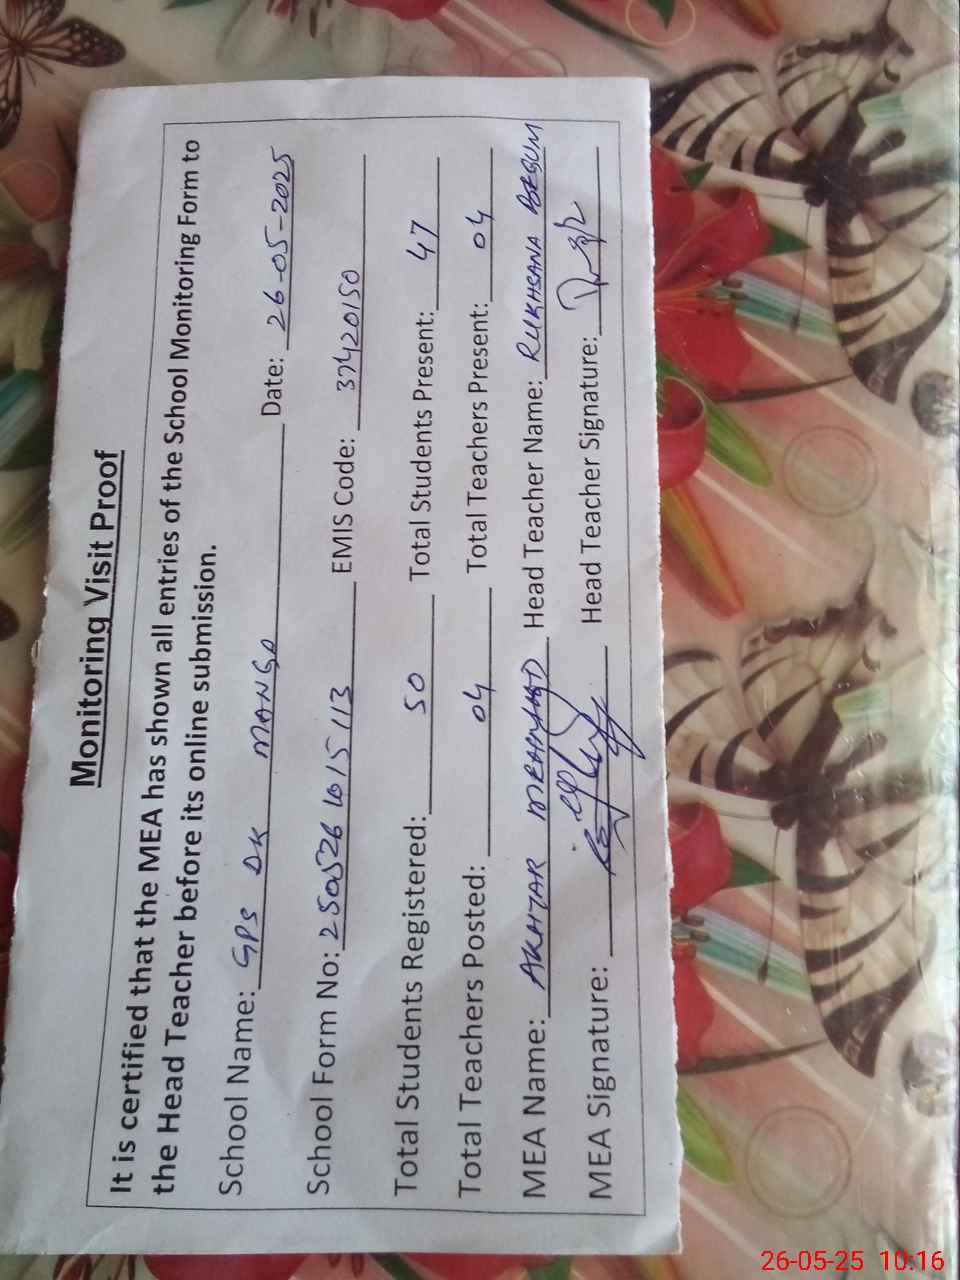 Monitoring Visit Proof
It is certified that the MEA has shown all entries of the School Monitoring Form to
the Head Teacher before its online submission.
School Name: GPS DK MANGO Date: 26-05-2025
School Form No: 2505261015113 EMIS Code: 37420150
Total Students Registered: 50 Total Students Present: 47
Total Teachers Posted: 04 Total Teachers Present: 04
MEA Name: AKHTAR MEHMOOD Head Teacher Name: RUKHSANA BEGUM
MEA Signature: Head Teacher Signature:
26-05-25 10:16